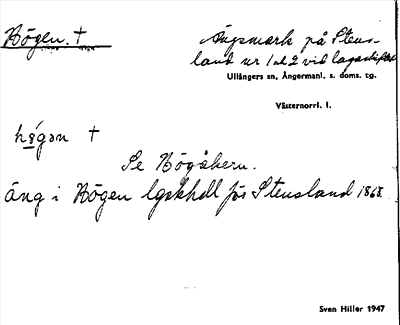 Högen. †
Ängsmark på Stens-
land nr 1 o 2 vid lagaskiftet
Ullångers sn, Ångermanl. s. doms. tg.
Västernorrl. l.
hö́gən †
Se Högåkern.
äng i Högen lgskhdl för Stensland 1868
Sven Hiller 1947